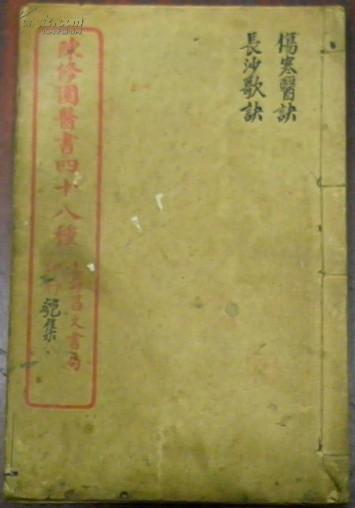 傷寒醫訣
長沙歌訣
陳修園醫書四十八種
昌文書局